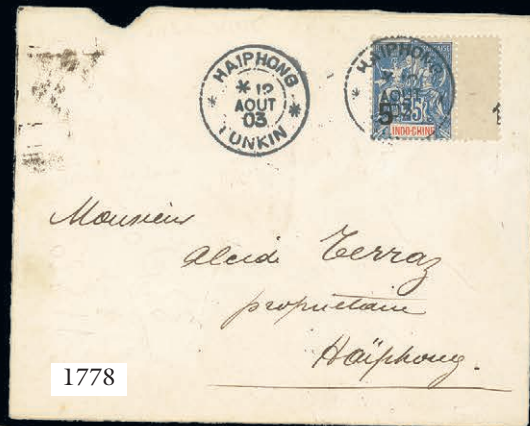 HAIPHONG
* 12 *
AOUT
03
TONKIN
HAIPHONG
AOUT
5 25
INDO-CHINE
Monsieur
Alcide Terraz
propriétaire
Haïphong.
1778